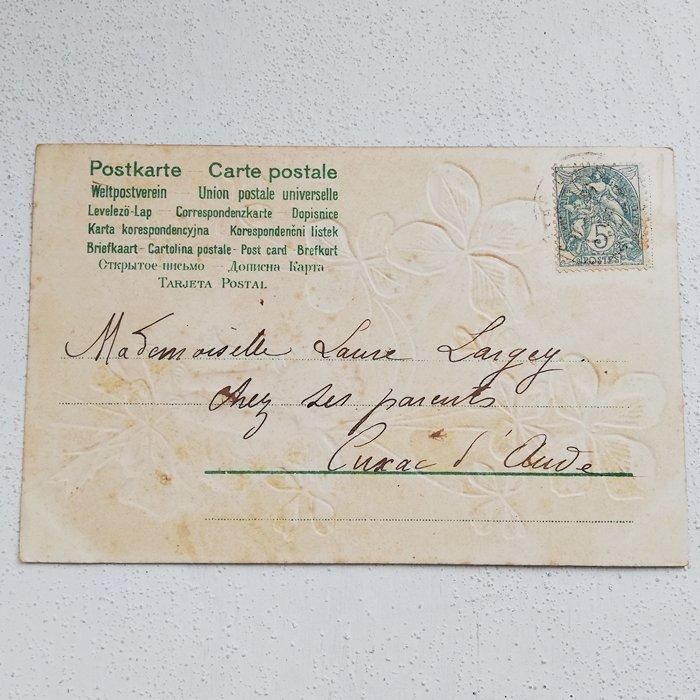 Postkarte Carte postale
Weltpostverein Union postale universelle
Levelező-Lap Correspondenzkarte Dopisnice
Karta korespondencyjna Korespondenčni listek
Briefkaart - Cartolina postale - Post card - Brefkort
Открытое письмо Дописна Карта
Tarjeta Postal
5
POSTES
Mademoiselle Laure Largey.
chez ses parents
Cuxac d'Aude